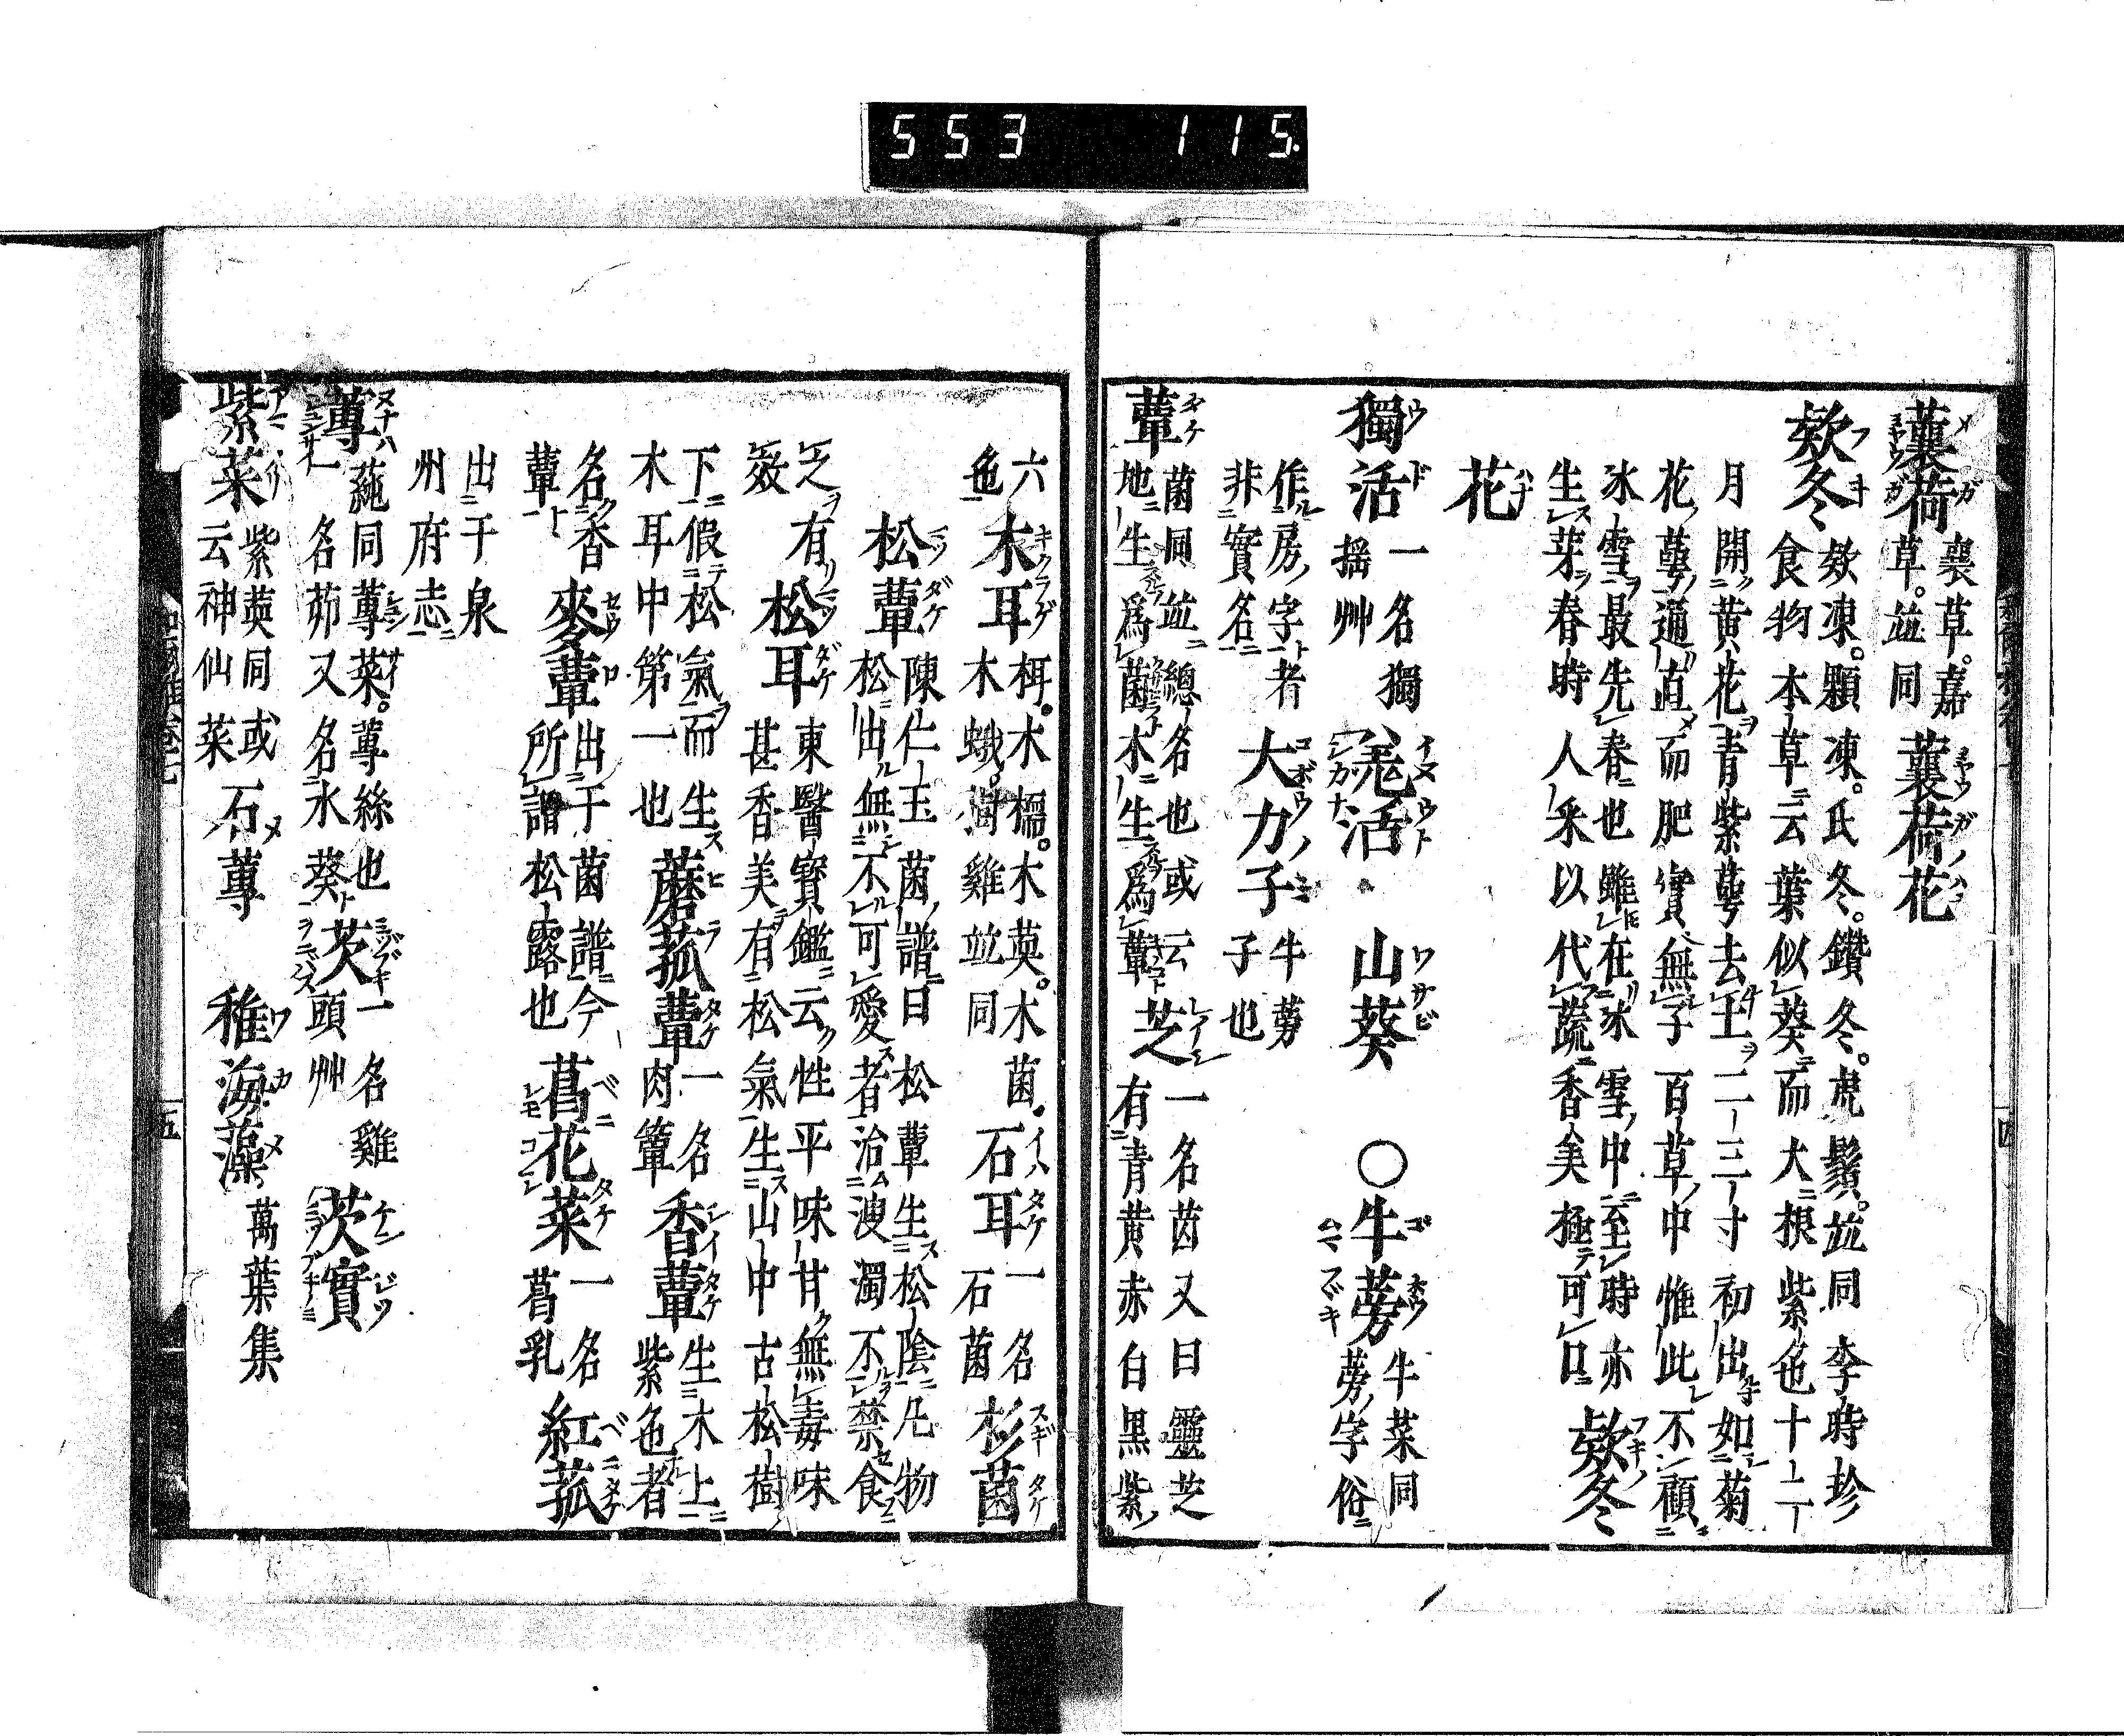 553 115.
蘘荷 蘘草。嘉草。並同 蘘荷花
欵冬 欵凍。顆凍。氐冬。鑽冬。虎鬚。並同李時珍
食物本草云葉似葵而大根紫色十一二
月開黄花青紫萼去土一二三寸初出如菊
花萼通直而肥實無子百草中惟此不顧
冰雪最先春也雖在冰雪中至時亦
生芽春時人采以代蔬香美極可口 欵冬
花
獨活 一名獨搖艸 羗活 山葵 ○牛蒡 牛菜同蒡字俗
作房字者非實名 大力子 牛蒡子也
蕈 菌同並總名也或云地生爲菌木生爲蕈 芝 一名茵又曰靈芝有青黄赤白黒紫
六色 木耳 栮。木檽。木英。木菌。木蛾。樹雞並同 石耳 一名石菌 杉菌
松蕈 陳仁玉菌譜曰松蕈生松陰凡物松出無不可愛者治溲濁不禁食
之有效 松耳 東醫寳鑑云性平味甘無毒味甚香美有松氣生山中古松樹
下假松氣而生木耳中第一也 蘑菰蕈 一名肉簟 香蕈 生木上紫色者
名香蕈 麥蕈 出于菌譜今所謂松露也 菖花菜 一名菖乳 紅菰
出于泉州府志
蓴 蒓同蓴菜。蓴絲也一名茆又名水葵 茨 一名雞頭艸 茨實
紫菜 紫英同或云神仙菜 石蓴 稚海藻 萬葉集